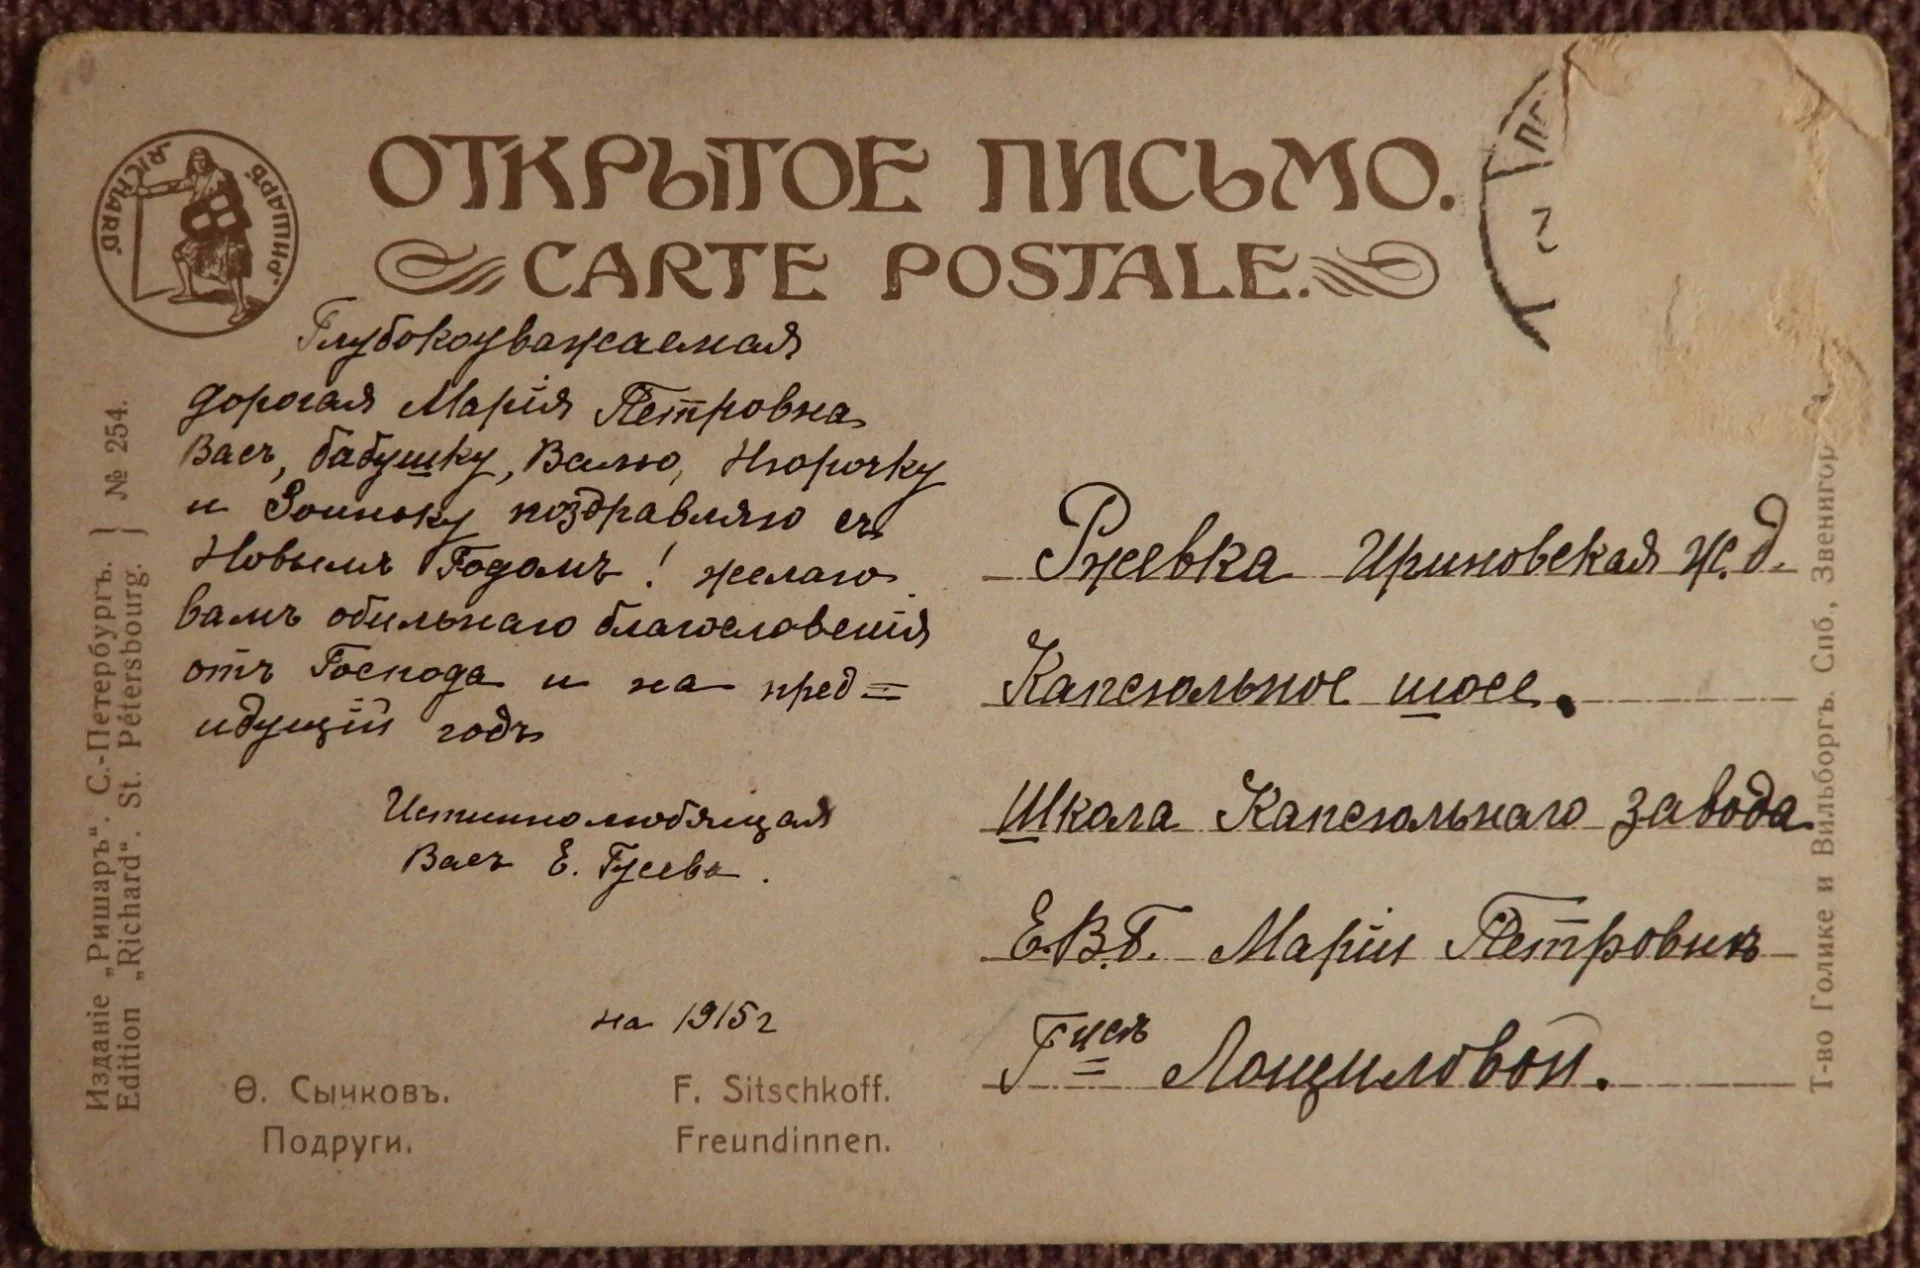 ОТКРЫТОЕ ПИСЬМО.
CARTE POSTALE.
„RICHARD“ „РИШАРЪ“
Глубокоуважаемая
дорогая Марія Петровна
Васъ, бабушку, Валю, Нюрочку
и Зоиньку поздравляю съ
Новымъ Годомъ! желаю
вамъ обильнаго благословенія
отъ Господа и на пред=
идущій годъ
Истиннолюбящая
Васъ Е. Гусева.
на 1915 г
Ѳ. Сычковъ.
Подруги.
F. Sitschkoff.
Freundinnen.
Издание „Ришаръ“. С.-Петербургъ.
Edition „Richard“. St. Pétersbourg.
№ 254.
Ржевка Ириновская ж.д.
Капсюльное шоссе.
Школа Капсюльнаго завода
Е.В.Б. Маріи Петровнѣ
Г-жѣ Лощиловой.
Т-во Голике и Вильборгъ. Спб., Звенигор